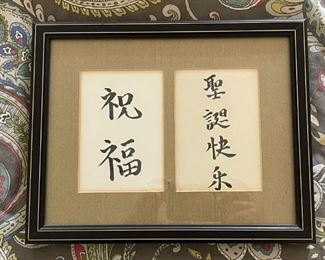 祝福
聖誕快乐